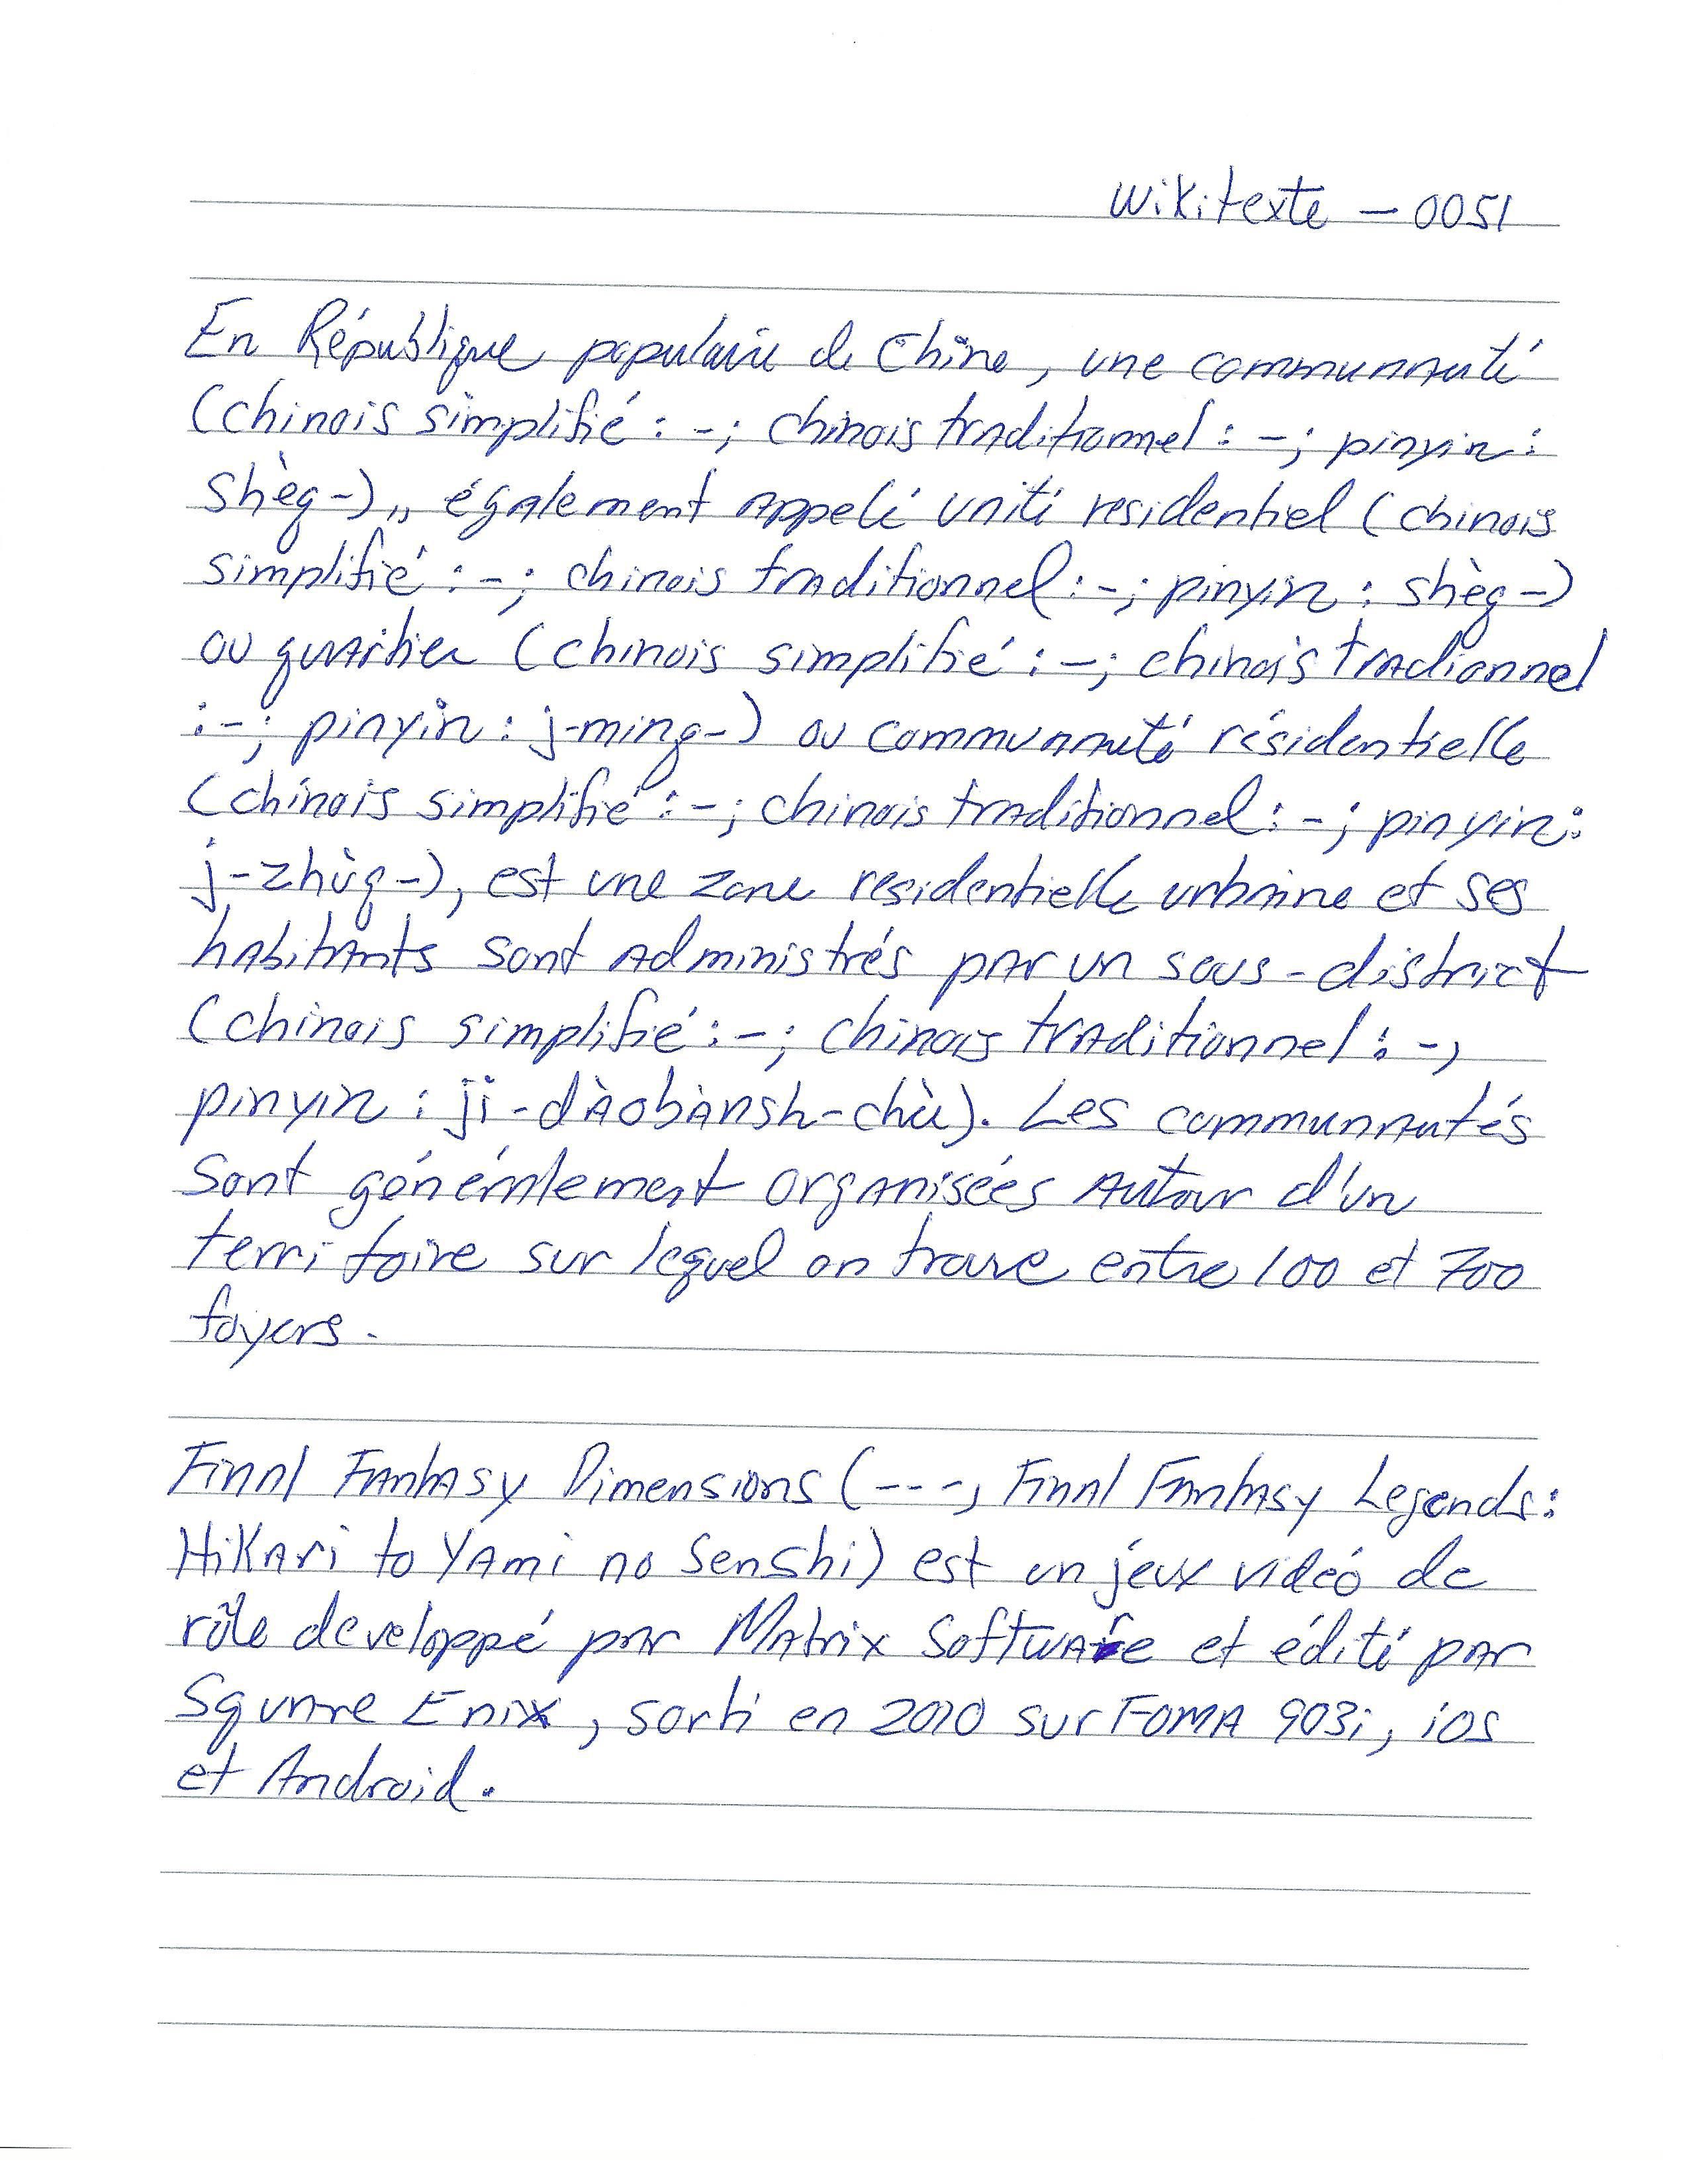 Wikitexte - 0051
En République populaire de Chine, une communauté
(chinois simplifié : -; chinois traditionnel : -; pinyin :
shèq-),, également appelé unité residentiel (chinois
simplifié : -; chinois traditionnel : -; pinyin : shèq-)
ou quartier (chinois simplifié : -; chinois tradionnel
: -; pinyin : j-ming-) ou communauté résidentielle
(chinois simplifié : -; chinois traditionnel : -; pinyin :
j-zhùq-), est une zone residentielle urbaine et ses
habitants sont administrés par un sous-district
(chinois simplifié : -; chinois traditionnel : -,
pinyin : ji-dàobànsh-chù). Les communautés
sont générelement organisées autour d'un
territoire sur lequel on trouve entre 100 et 700
foyers.
Final Fantasy Dimensions (---, Final Fantasy Legends :
Hikari to Yami no Senshi) est un jeux vidéo de
rôle developpé par Matrix Software et édité par
Square Enix, sorti en 2010 sur FOMA 903i, ios
et Android.